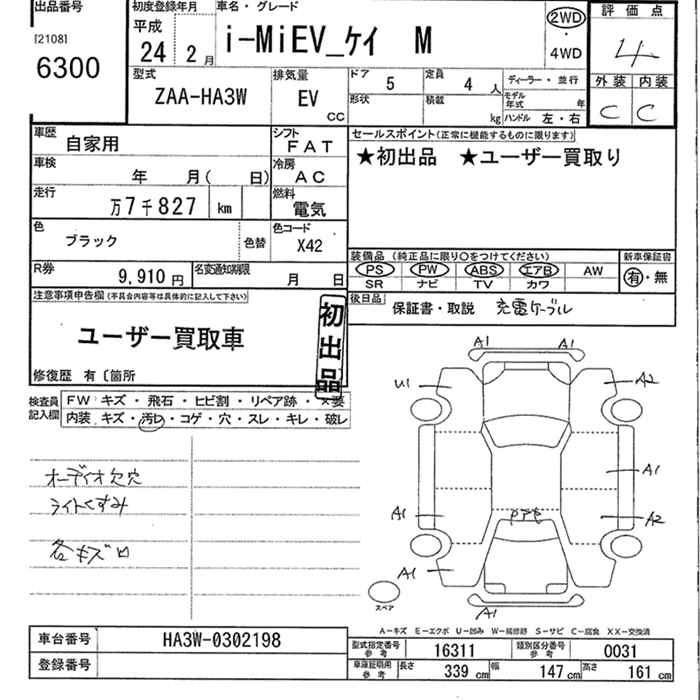 出品番号
[2108]
6300
初度登録年月
平成
24年 2月
車名・グレード
i-MiEV_ケイ M
2WD
・
4WD
評価点
4
外装 内装
C C
型式
ZAA-HA3W
排気量
EV
CC
ドア 5
定員 4 人
ディーラー・並行
形状
積載 kg
モデル年式 年
ハンドル 左・右
車歴 自家用
シフト FAT
車検 年 月( 日)
冷房 AC
走行 万7千827 km
燃料 電気
色 ブラック 色替
色コード X42
R券 9,910円
名変通知期限 月 日
セールスポイント(正常に機能するものに限ります)
★初出品 ★ユーザー買取り
装備品 (純正品に限り○をつけてください)
新車保証書
PS PW ABS エアB AW
有・無
SR ナビ TV カワ
後日品 保証書・取説 充電ケーブル
注意事項申告欄(不具合内容等は具体的に記入して下さい)
ユーザー買取車
初出品
修復歴 有〔箇所
検査員記入欄
FW キズ・飛石・ヒビ割・リペア跡・×要
内装 キズ・汚レ・コゲ・穴・スレ・キレ・破レ
オーディオ欠穴
ライトくすみ
各キズ凹
A1 A1
U1 A2
A1
A1 A2
A1
A1
スペア
A-キズ E-エクボ U-凹み W-補修跡 S-サビ C-腐食 XX-交換済
車台番号 HA3W-0302198
登録番号
型式指定番号 参考 16311
類別区分番号 参考 0031
車庫証明用 参考 長さ 339 cm 幅 147 cm 高さ 161 cm